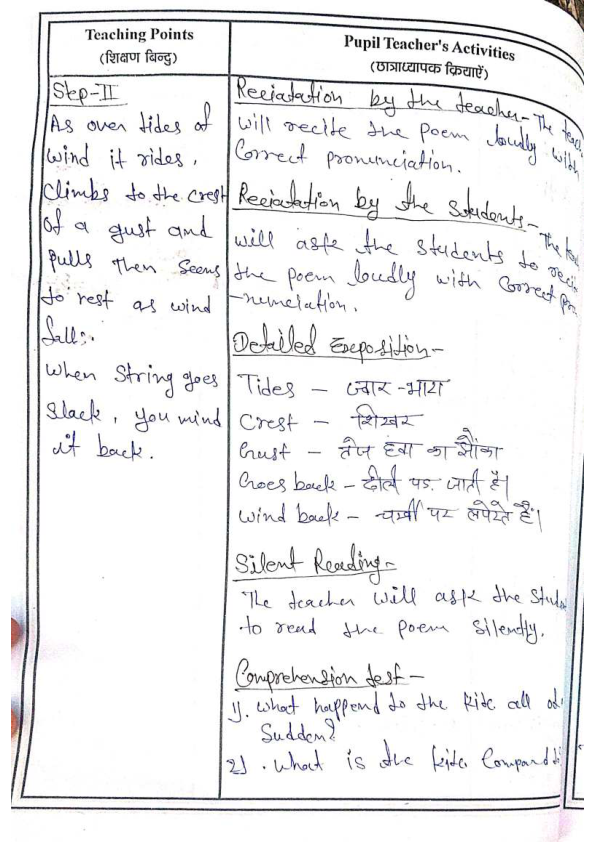 Teaching Points
(शिक्षण बिन्दु)
Step-II
As over tides of
wind it rides,
Climbs to the crest
of a gust and
pulls Then seems
to rest as wind
falls.
When String goes
Slack, you wind
it back.
Pupil Teacher's Activities
(छात्राध्यापक क्रियाऐं)
Reciatation by the teacher- The
will recite the poem loudly with
Correct pronunciation.
Reciatation by the Students- The
will ask the students to
the poem loudly with Correct
-nunciation.
Detailed Exeposition-
Tides - ज्वार-भाटा
Crest - शिखर
Gust - तेज हवा का झौंका
Goes back - ढीली पड़ जाती है।
Wind back - चर्खी पर लपेटते हैं।
Silent Reading-
The teacher will ask the
to read the poem Silently.
Comprehension test-
1). What happend to the kite all of
Sudden?
2). What is the kite